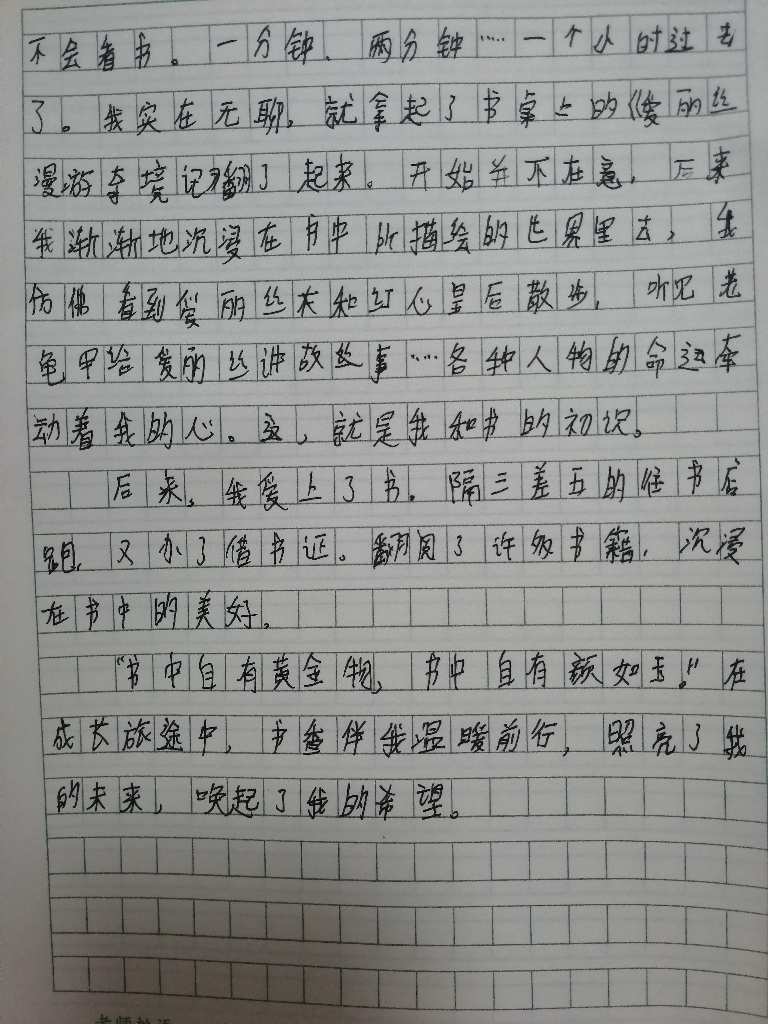 不会看书。一分钟、两分钟……一个小时过去
了。我实在无聊,就拿起了书桌上的《爱丽丝
漫游奇境记》翻了起来。开始并不在意,后来
我渐渐地沉浸在书中所描绘的世界里去,我
仿佛看到爱丽丝在和红心皇后散步,听见老
龟甲给爱丽丝讲故事……各种人物的命运牵
动着我的心。这,就是我和书的初识。
后来,我爱上了书。隔三差五的往书店
跑,又办了借书证。翻阅了许多书籍,沉浸
在书中的美好。
“书中自有黄金物,书中自有颜如玉。”在
成长旅途中,书香伴我温暖前行,照亮了我
的未来,唤起了我的希望。